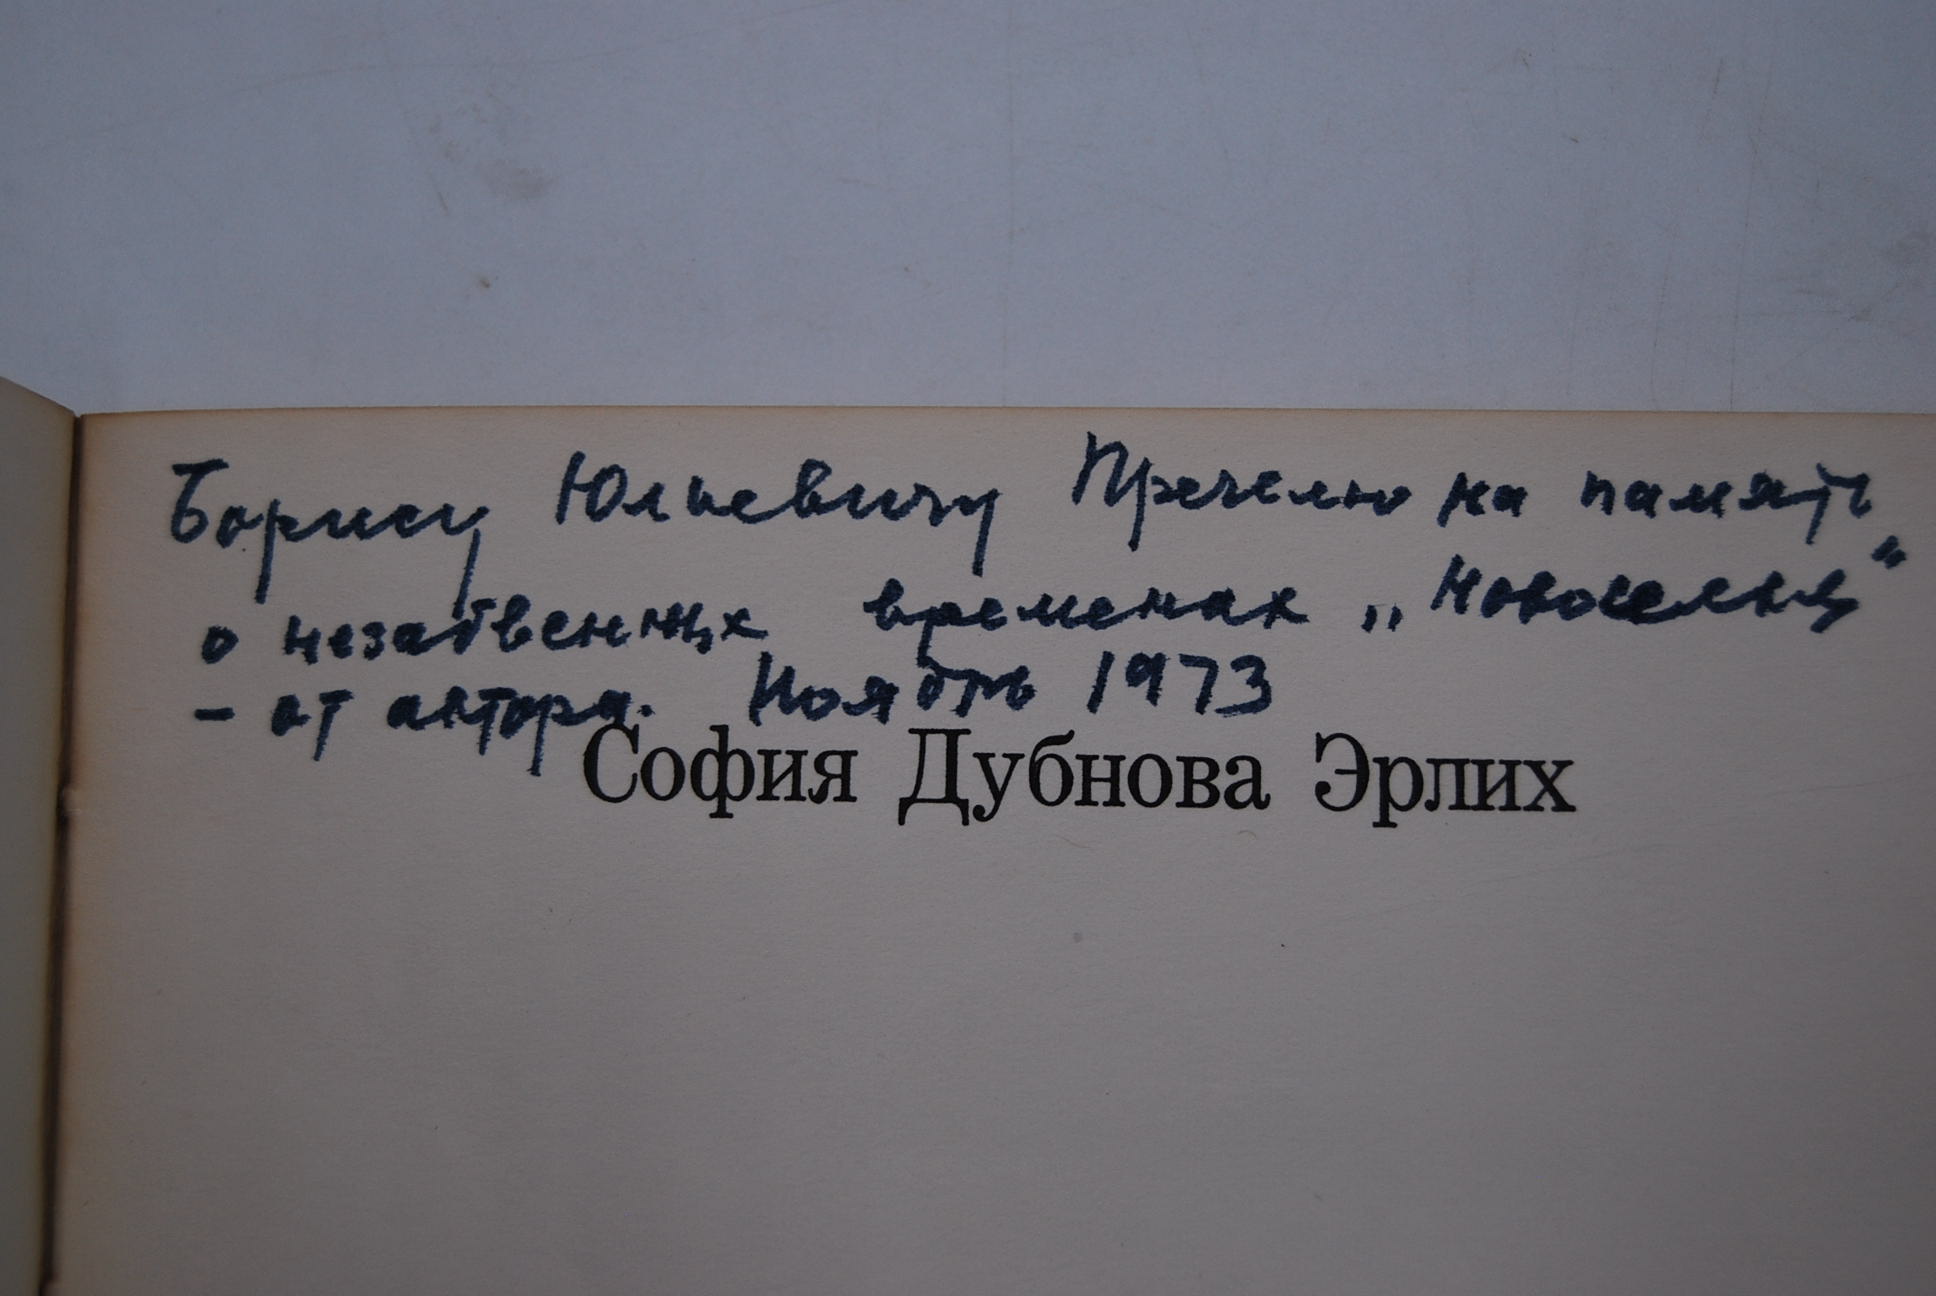 Борису Юльевичу Пречелю на память
о незабвенных временах „Новоселья“
– от автора. Ноябрь 1973
София Дубнова Эрлих